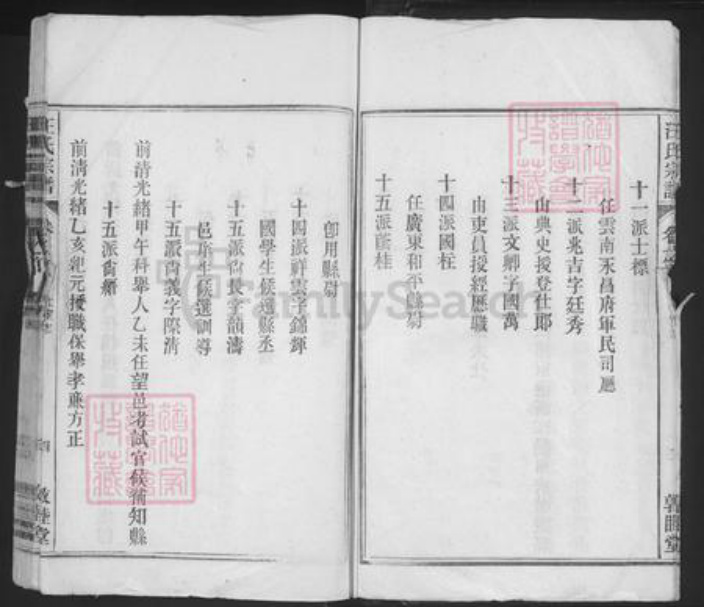 汪氏宗譜
十一派士標
任雲南永昌府軍民司廳
十二派兆吉字廷秀
由典史授登仕郎
十三派文卿字國萬
由吏員授經歷職
十四派國柱
任廣東和平縣尉
十五派 桂
敦睦堂
即用縣尉
十四派祥雲字錦輝
國學生候選縣丞
十五派尙 字韻濤
邑 生候選訓導
十五派尙義字際清
前清光緒甲午科舉人乙未任望邑考試官候補知縣
十五派尙
前清光緒乙亥紀元授職保舉孝廉方正
汪氏宗譜
四
敦睦堂
FamilySearch